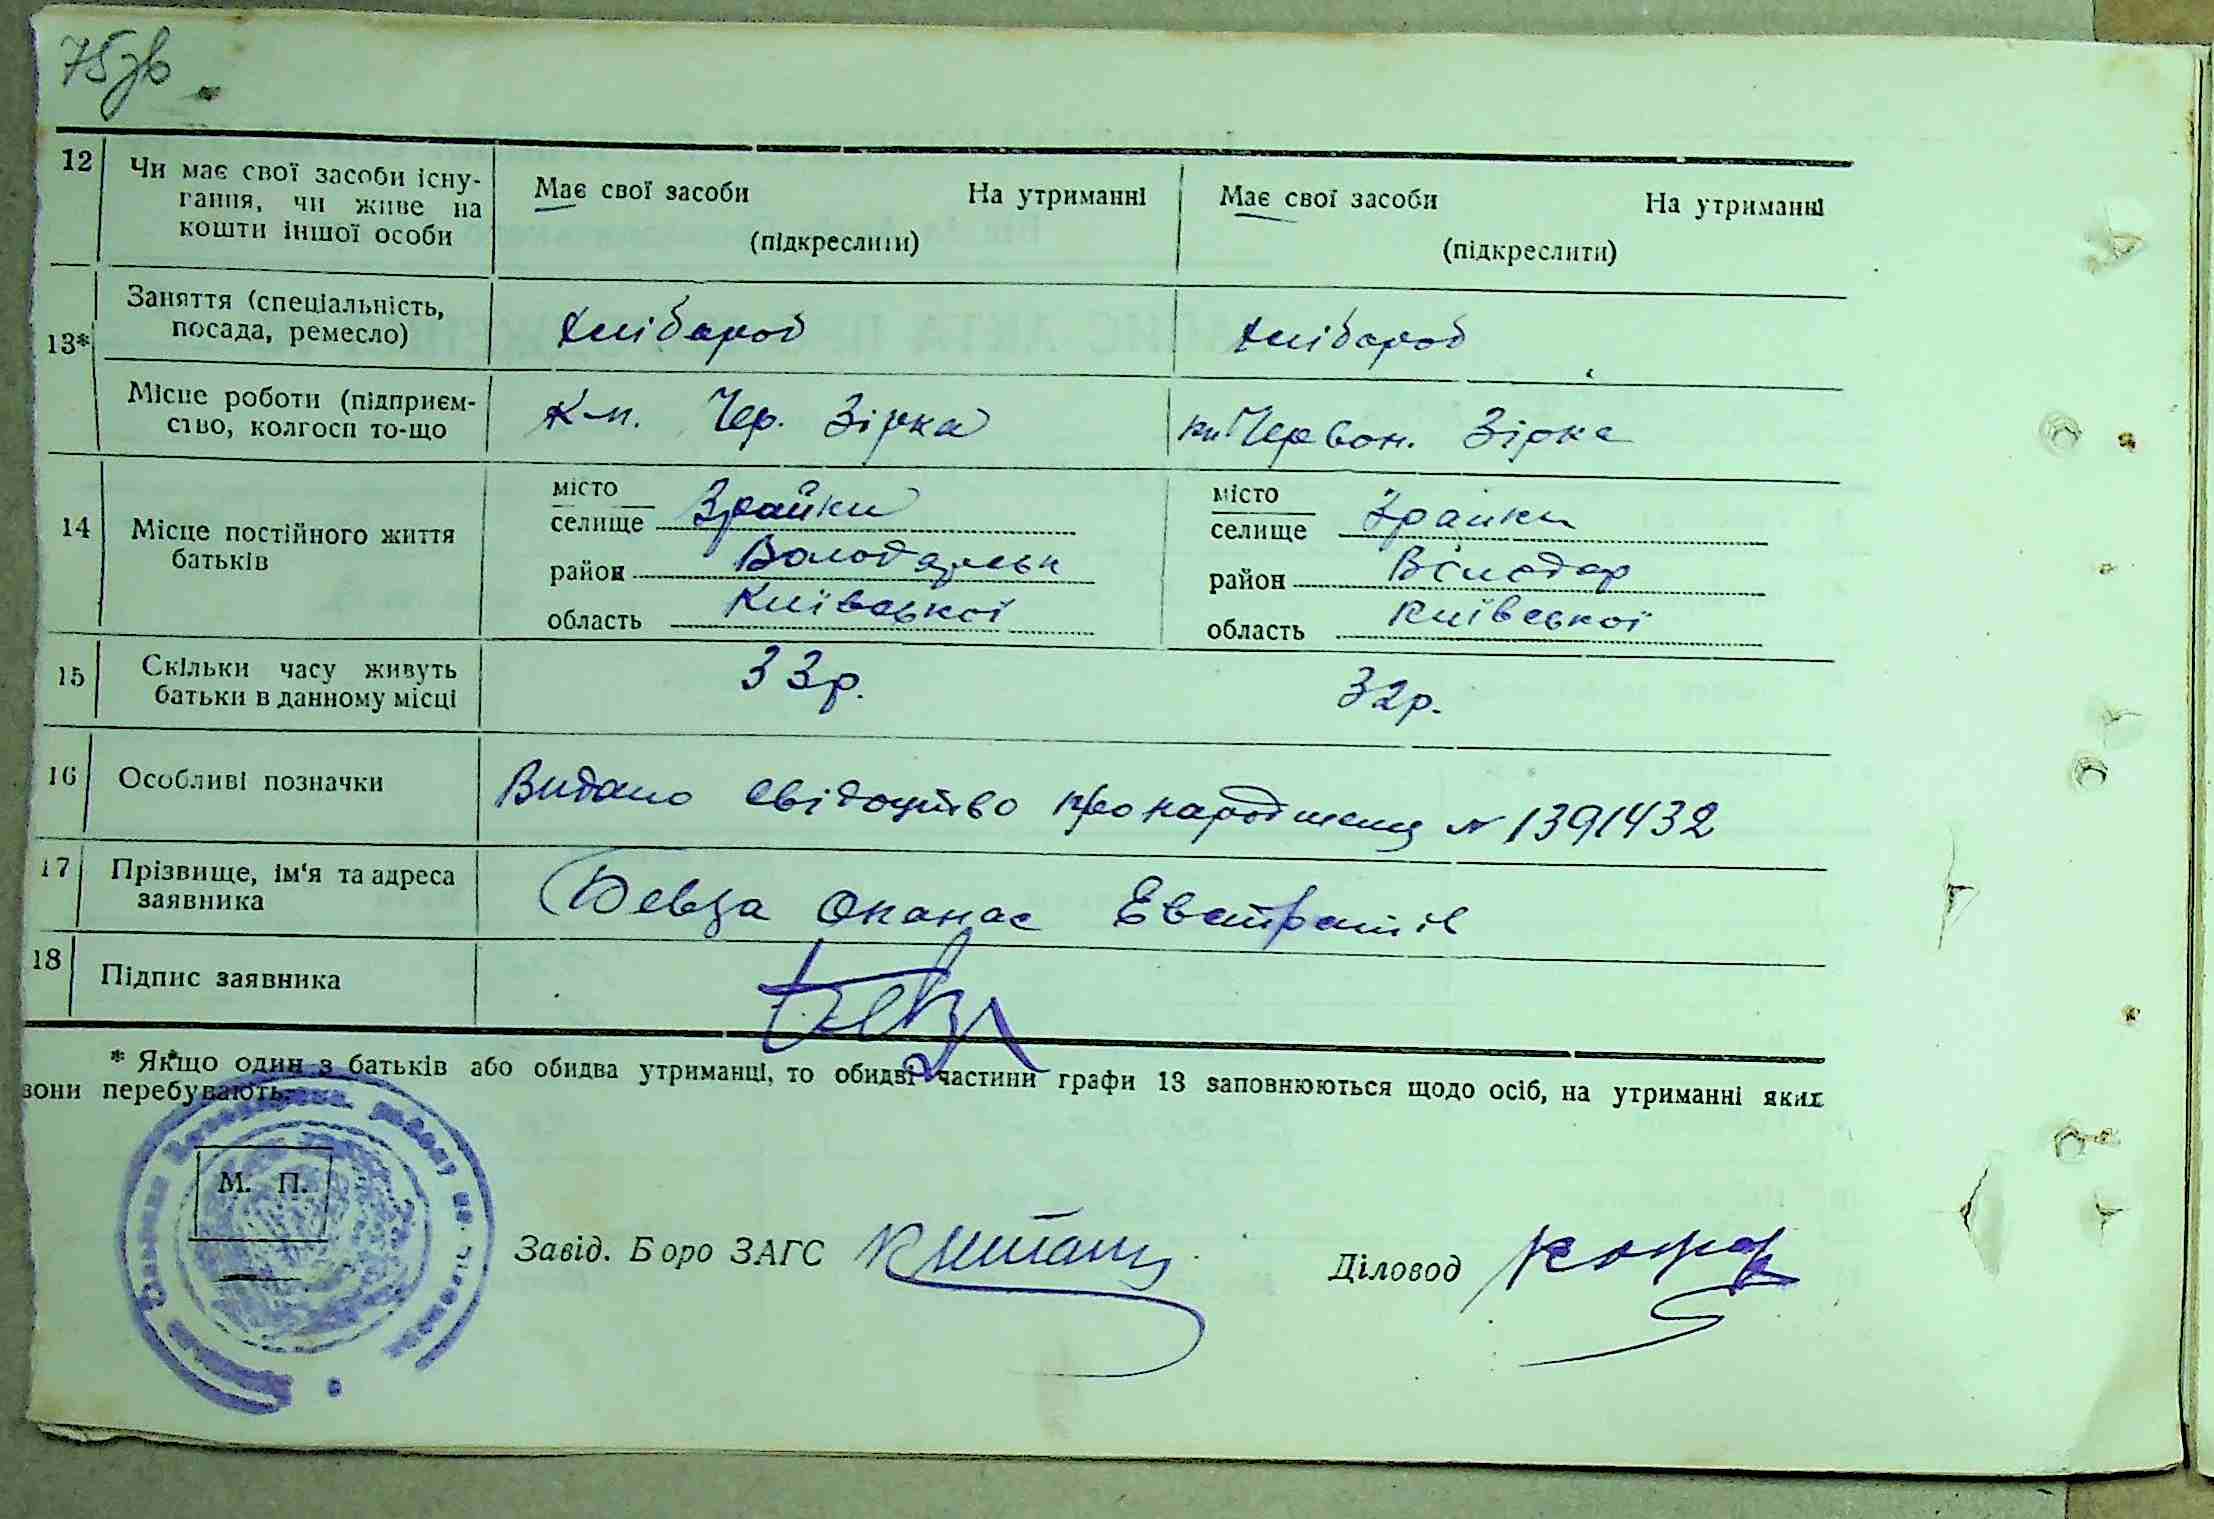 75зв
12 Чи має свої засоби існу-
гання, чи живе на
кошти іншої особи
Має свої засоби На утриманні
(підкреслити)
Має свої засоби На утриманні
(підкреслити)
13*
Заняття (спеціальність,
посада, ремесло)
хлібороб
хлібороб
Місце роботи (підприєм-
ство, колгосп то-що
Чер. Зірка
Червон. Зірка
14 Місце постійного життя
батьків
місто
селище Зрайки
район Володарськ
область Київської
місто
селище Зрайки
район Володар
область Київської
15 Скільки часу живуть
батьки в данному місці
33р.
32р.
16 Особливі позначки
Видано свідоцтво про народженц № 1391432
17 Прізвище, ім'я та адреса
заявника
Бевза Опанас Евстратів
18 Підпис заявника
Бевза
* Якщо один з батьків або обидва утриманці, то обидві частини графи 13 заповнюються щодо осіб, на утриманні яких
вони перебувають.
М. П.
Завід. Боро ЗАГС
Діловод